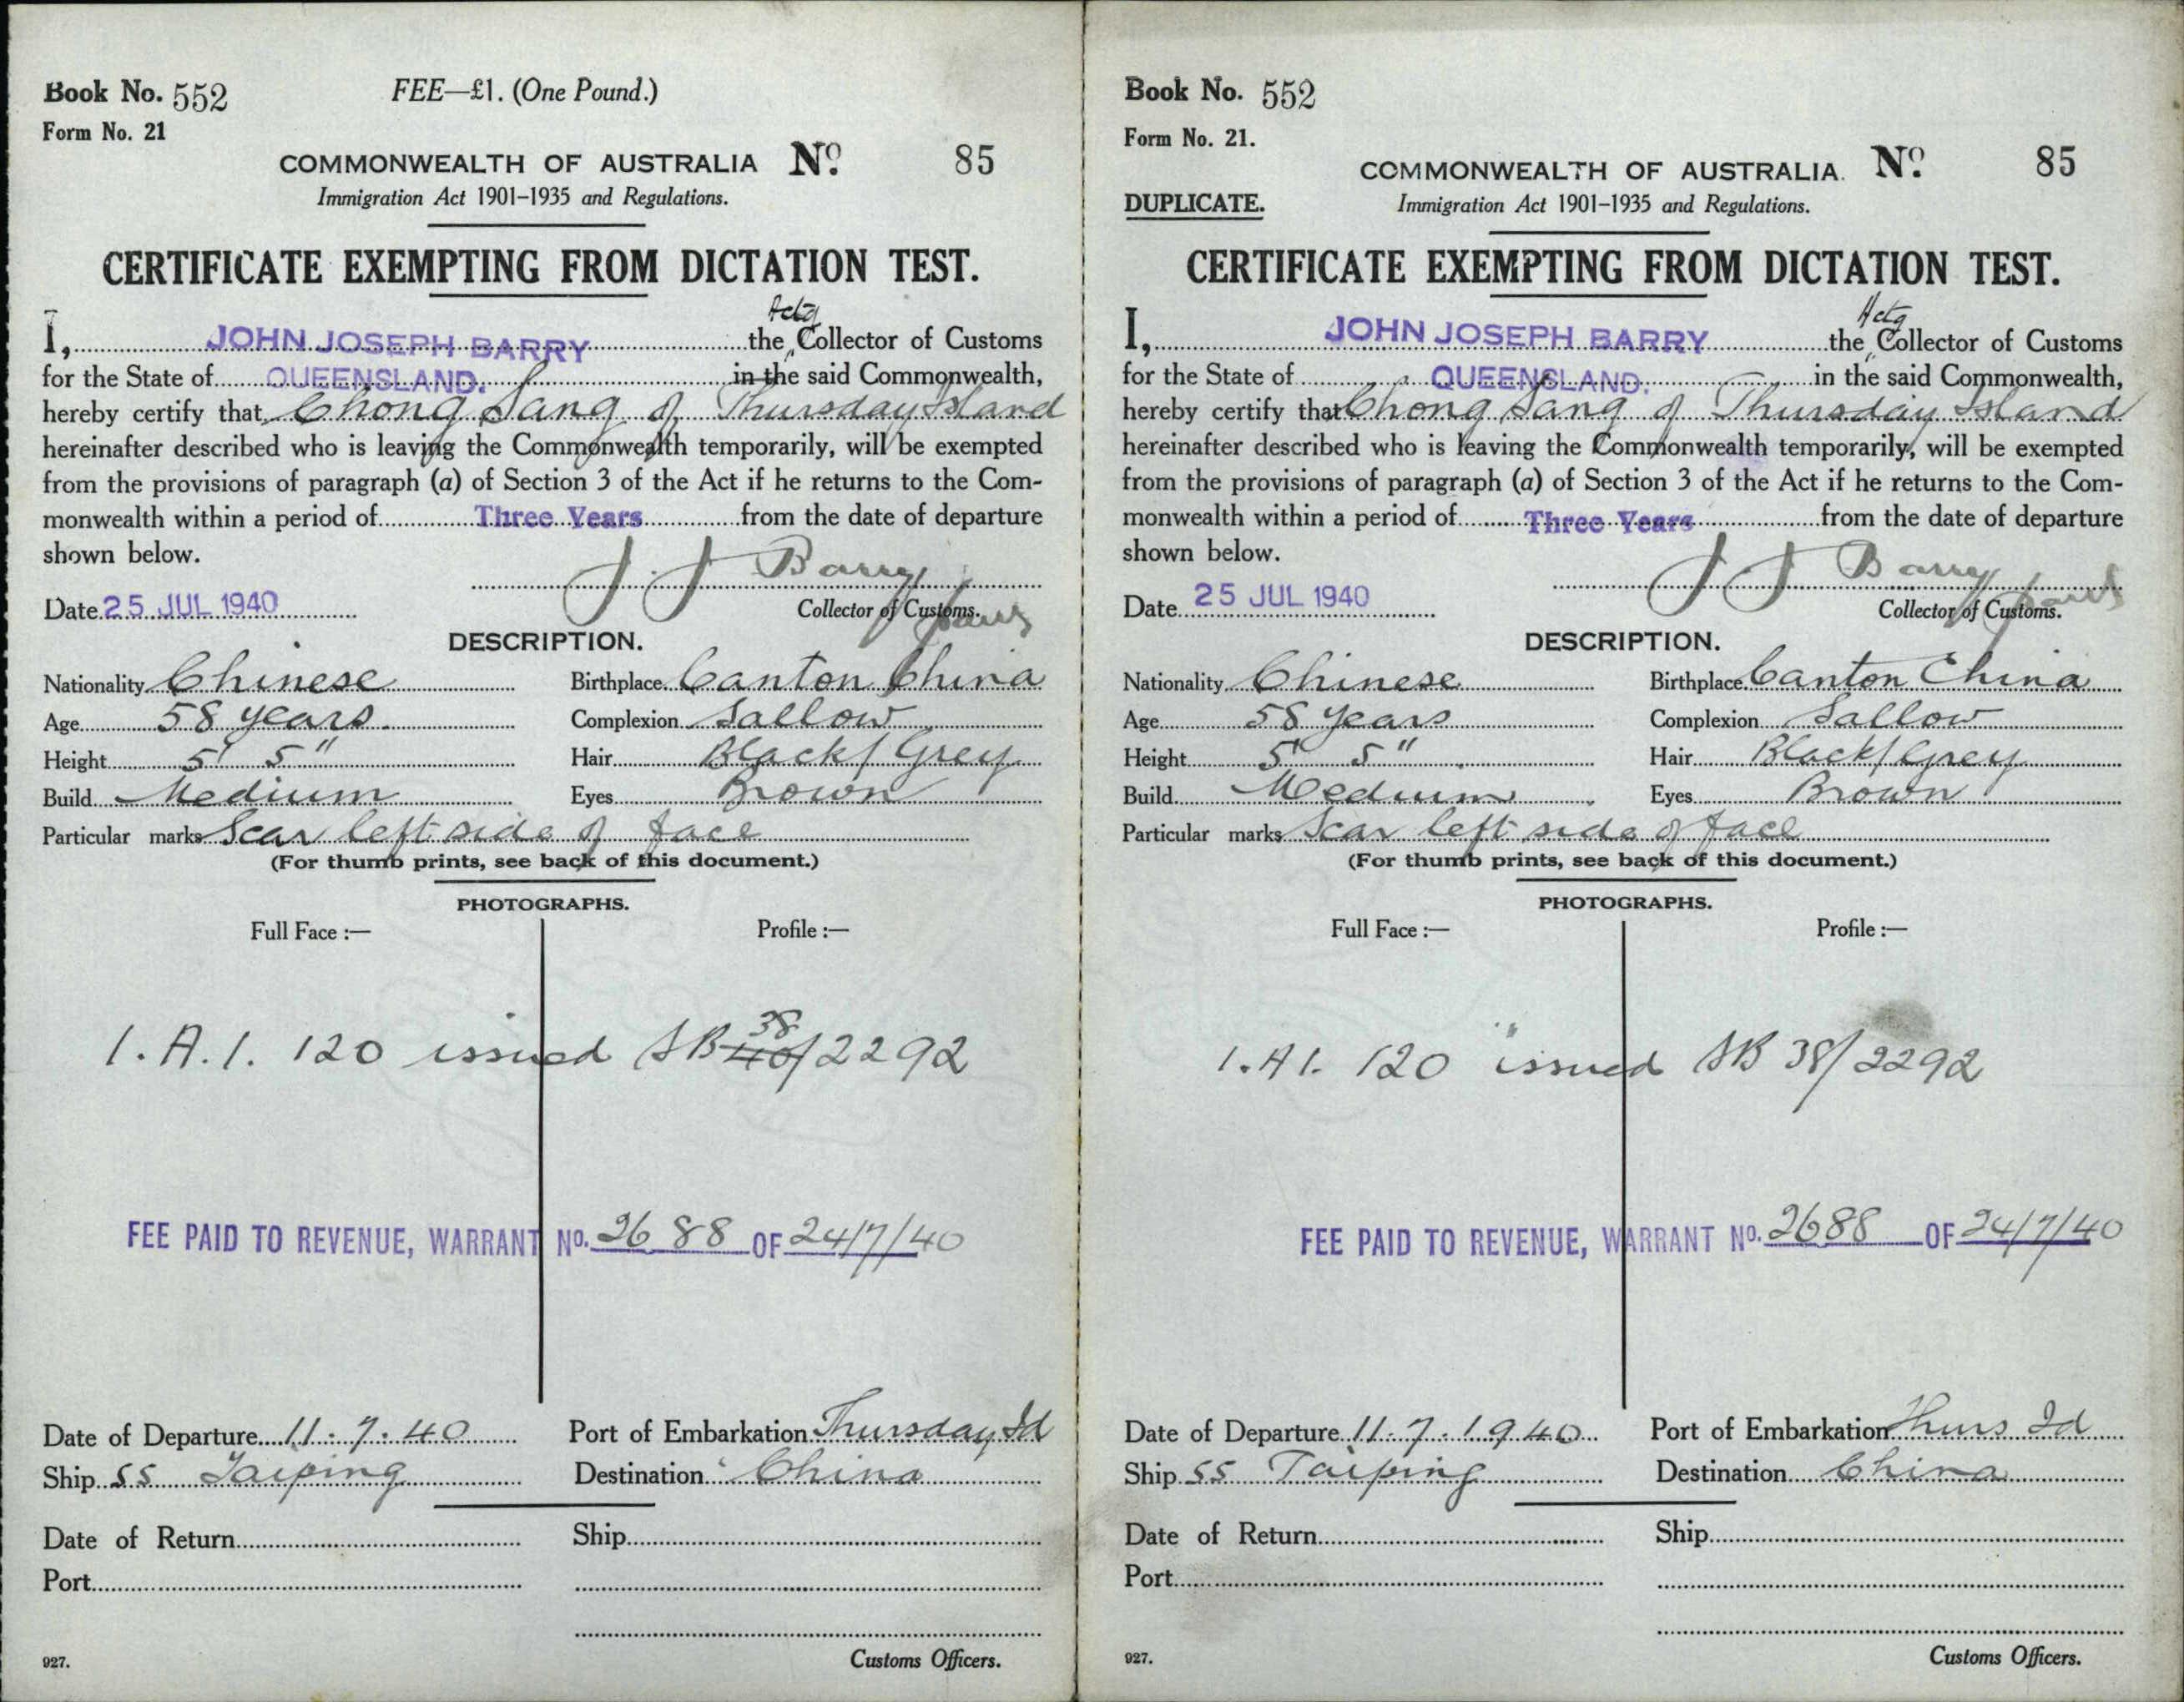 Book No. 552
FEE—£1. (One Pound.)
Form No. 21
COMMONWEALTH OF AUSTRALIA No. 85
Immigration Act 1901–1935 and Regulations.
CERTIFICATE EXEMPTING FROM DICTATION TEST.
Actg
I, JOHN JOSEPH BARRY the Collector of Customs
for the State of QUEENSLAND. in the said Commonwealth,
hereby certify that Chong Sang of Thursday Island
hereinafter described who is leaving the Commonwealth temporarily, will be exempted
from the provisions of paragraph (a) of Section 3 of the Act if he returns to the Com-
monwealth within a period of Three Years from the date of departure
shown below.
J. J. Barry
Date 25 JUL 1940 Collector of Customs.
DESCRIPTION.
Nationality Chinese Birthplace Canton China
Age 58 years Complexion Sallow
Height 5' 5" Hair Black/Grey
Build Medium Eyes Brown
Particular marks Scar left side of face
(For thumb prints, see back of this document.)
PHOTOGRAPHS.
Full Face :— Profile :—
38
1. A. 1. 120 issued SB 40/2292
FEE PAID TO REVENUE, WARRANT No. 2688 OF 24/7/40
Date of Departure 11. 7. 40 Port of Embarkation Thursday Id
Ship SS Taiping Destination China
Date of Return Ship
Port
927. Customs Officers.
Book No. 552
Form No. 21.
COMMONWEALTH OF AUSTRALIA. No. 85
DUPLICATE. Immigration Act 1901–1935 and Regulations.
CERTIFICATE EXEMPTING FROM DICTATION TEST.
Actg
I, JOHN JOSEPH BARRY the Collector of Customs
for the State of QUEENSLAND. in the said Commonwealth,
hereby certify that Chong Sang of Thursday Island
hereinafter described who is leaving the Commonwealth temporarily, will be exempted
from the provisions of paragraph (a) of Section 3 of the Act if he returns to the Com-
monwealth within a period of Three Years from the date of departure
shown below.
J J Barry
Date 25 JUL 1940 Collector of Customs.
DESCRIPTION.
Nationality Chinese Birthplace Canton China
Age 58 years Complexion Sallow
Height 5' 5" Hair Black/Grey
Build Medium Eyes Brown
Particular marks Scar left side of face
(For thumb prints, see back of this document.)
PHOTOGRAPHS.
Full Face :— Profile :—
1. A 1. 120 issued SB 38/2292
FEE PAID TO REVENUE, WARRANT No. 2688 OF 24/7/40
Date of Departure 11. 7. 1940 Port of Embarkation Thurs Id
Ship SS Taiping Destination China
Date of Return Ship
Port
927. Customs Officers.